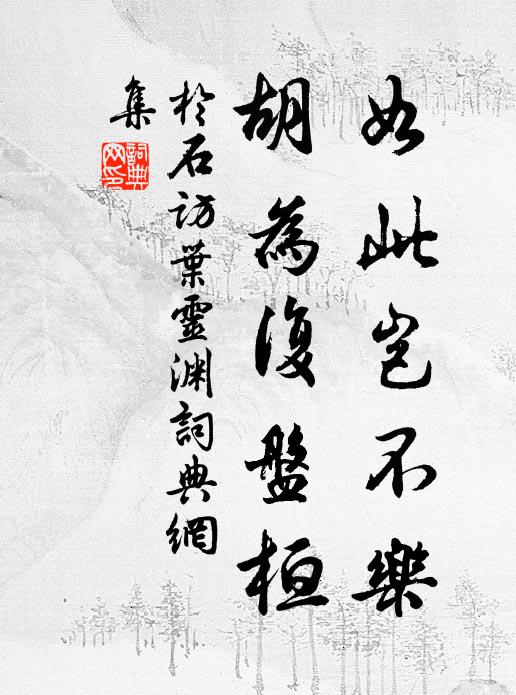 如此豈不樂
胡為復盤桓
於石訪葉靈渊詞典網
集
詞典
网印